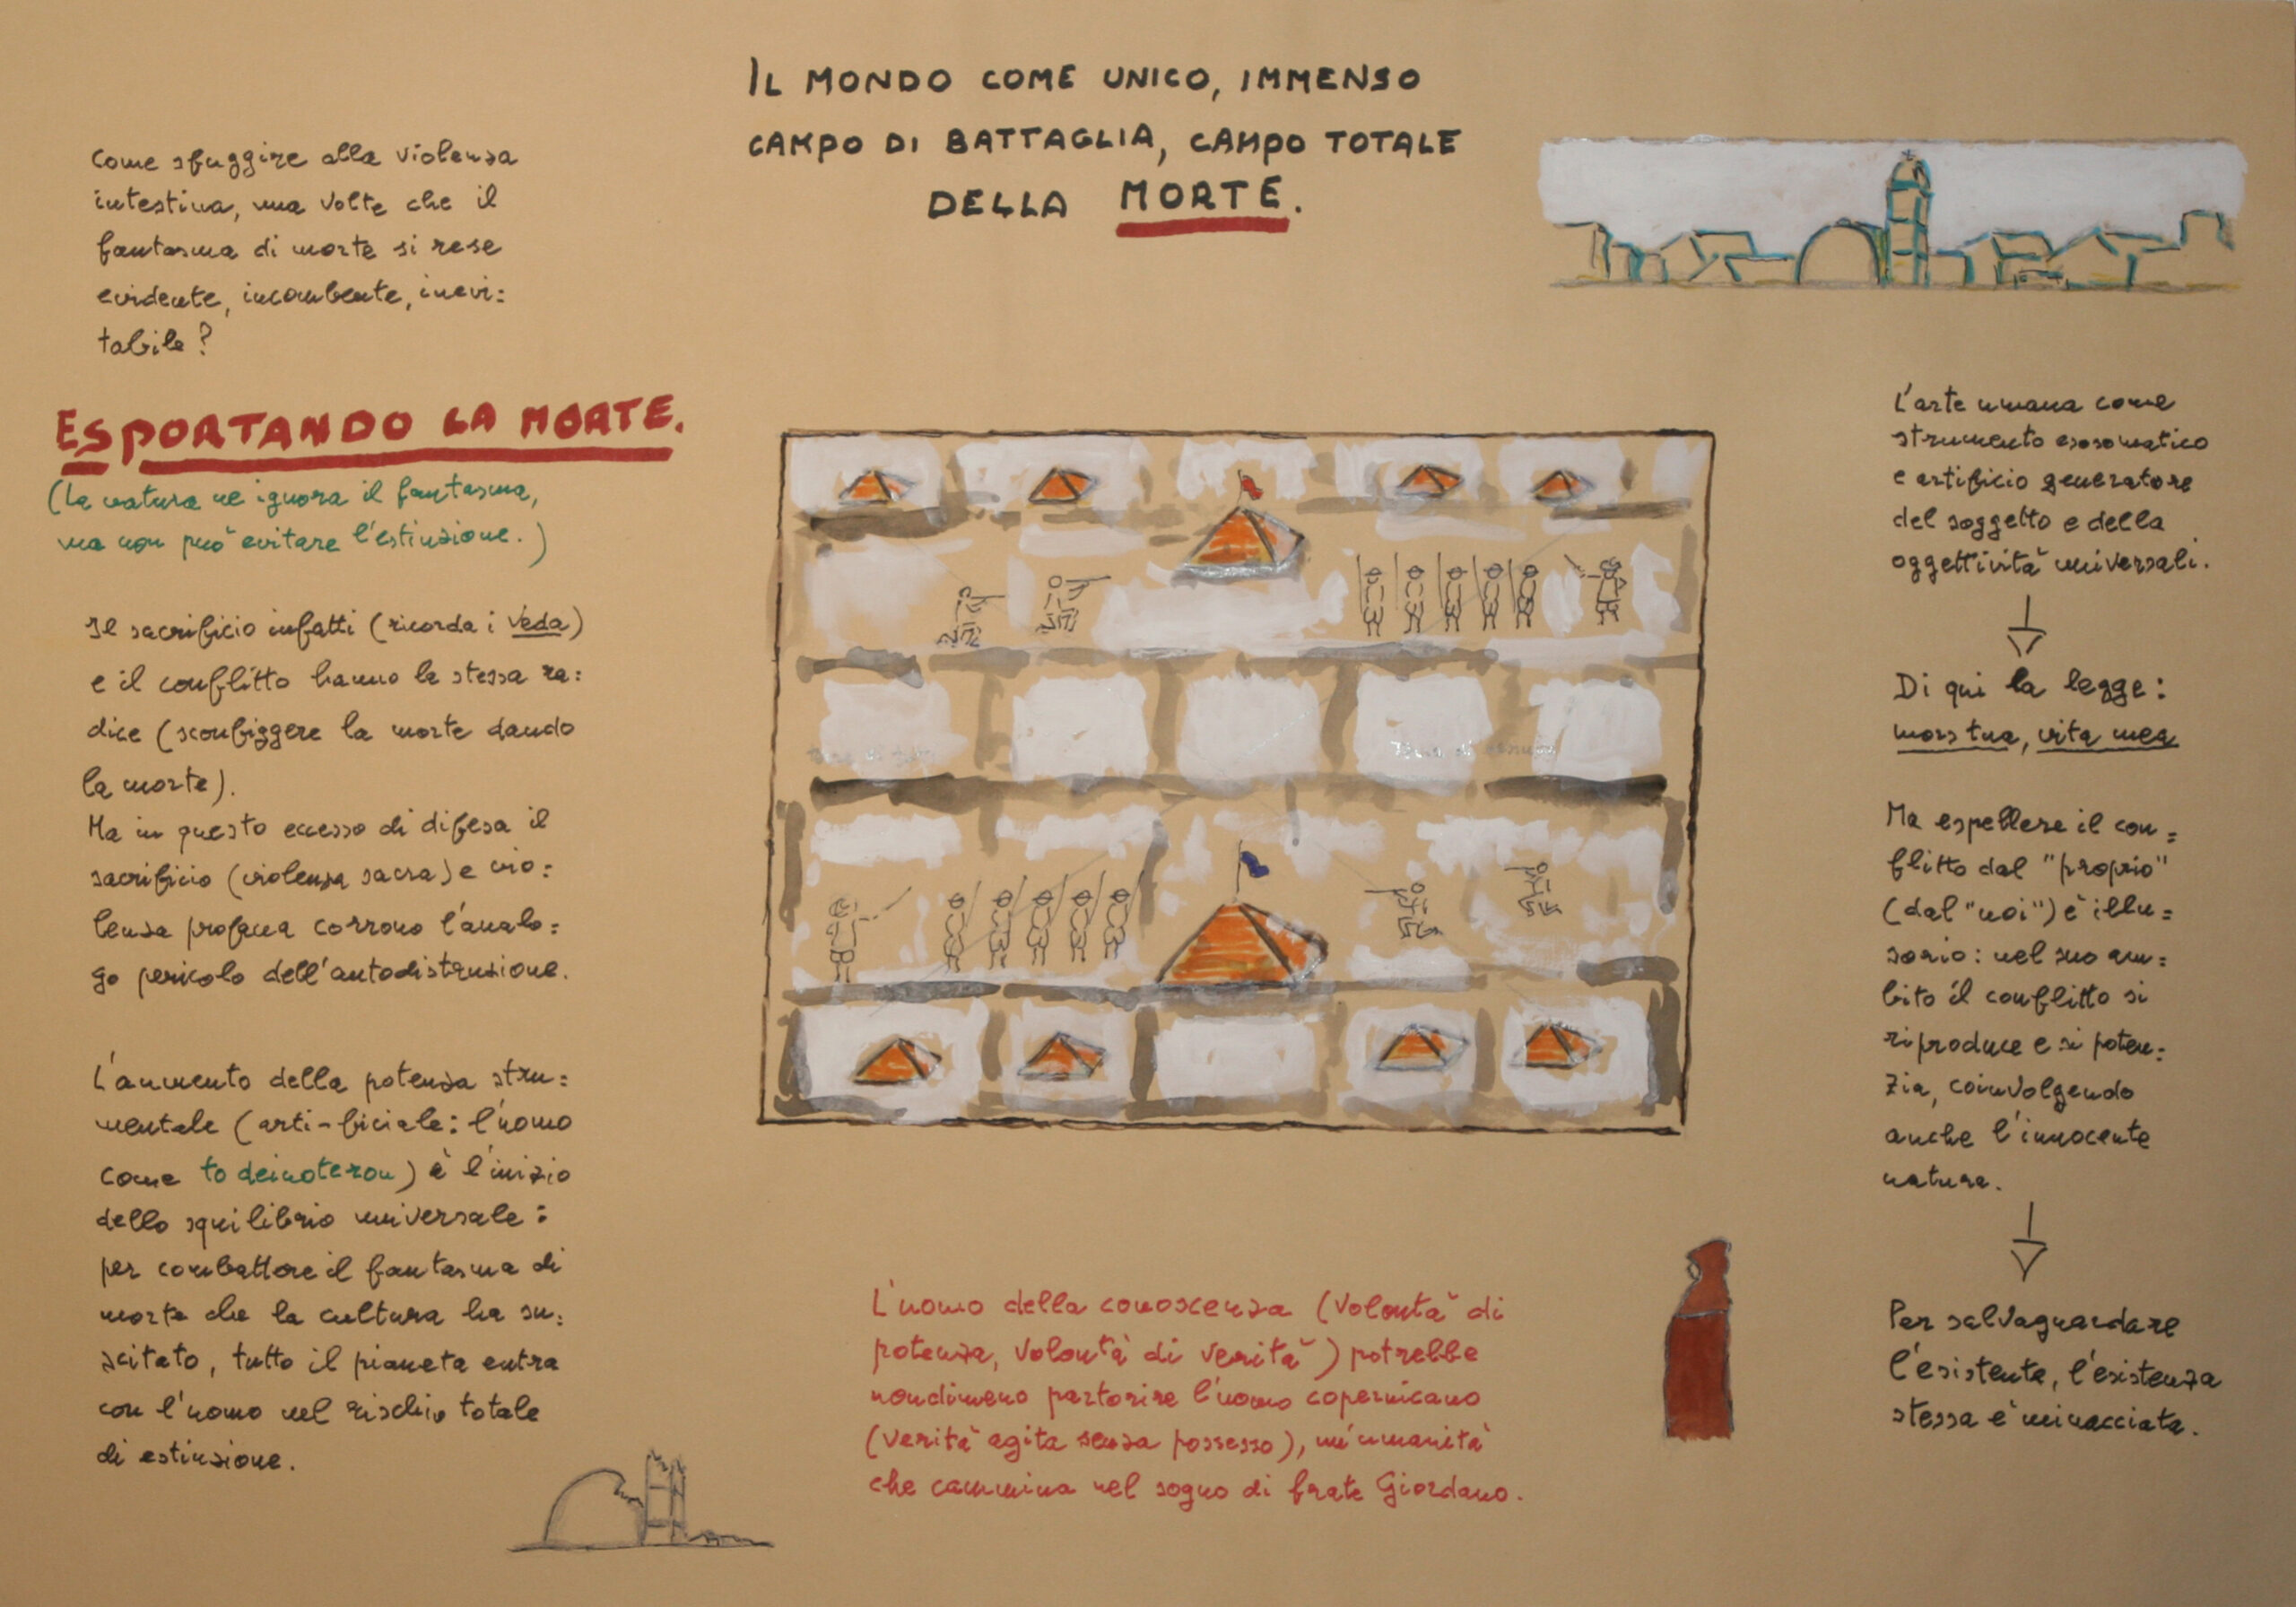 IL MONDO COME UNICO, IMMENSO
CAMPO DI BATTAGLIA, CAMPO TOTALE
DELLA MORTE.
Come sfuggire alla violenza
intestina, una volta che il
fantasma di morte si rese
evidente, incombente, inevi=
tabile?
ESPORTANDO LA MORTE.
(La natura ne ignora il fantasma,
ma non può evitare l'estinzione.)
Il sacrificio infatti (ricorda i Veda)
e il conflitto hanno la stessa ra=
dice (sconfiggere la morte dando
la morte).
Ma in questo eccesso di difesa il
sacrificio (violenza sacra) e vio=
lenza profana corrono l'analo=
go pericolo dell'autodistruzione.
L'aumento della potenza stru=
mentale (arti-ficiale: l'uomo
come to deinoteron) è l'inizio
dello squilibrio universale:
per combattere il fantasma di
morte che la cultura ha su=
scitato, tutto il pianeta entra
con l'uomo nel rischio totale
di estinzione.
L'uomo della conoscenza (Volontà di
potenza, Volontà di verità) potrebbe
nondimeno partorire l'uomo copernicano
(verità agita senza possesso), un'umanità
che cammina nel sogno di frate Giordano.
L'arte umana come
strumento esosomatico
e artificio generatore
del soggetto e della
oggettività universali.
Di qui la legge:
mors tua, vita mea
Ma espellere il con=
flitto dal "proprio"
(dal "noi") è illu=
sorio: nel suo am=
bito il conflitto si
riproduce e si poten=
zia, coinvolgendo
anche l'innocente
natura.
Per salvaguardare
l'esistente, l'esistenza
stessa è minacciata.